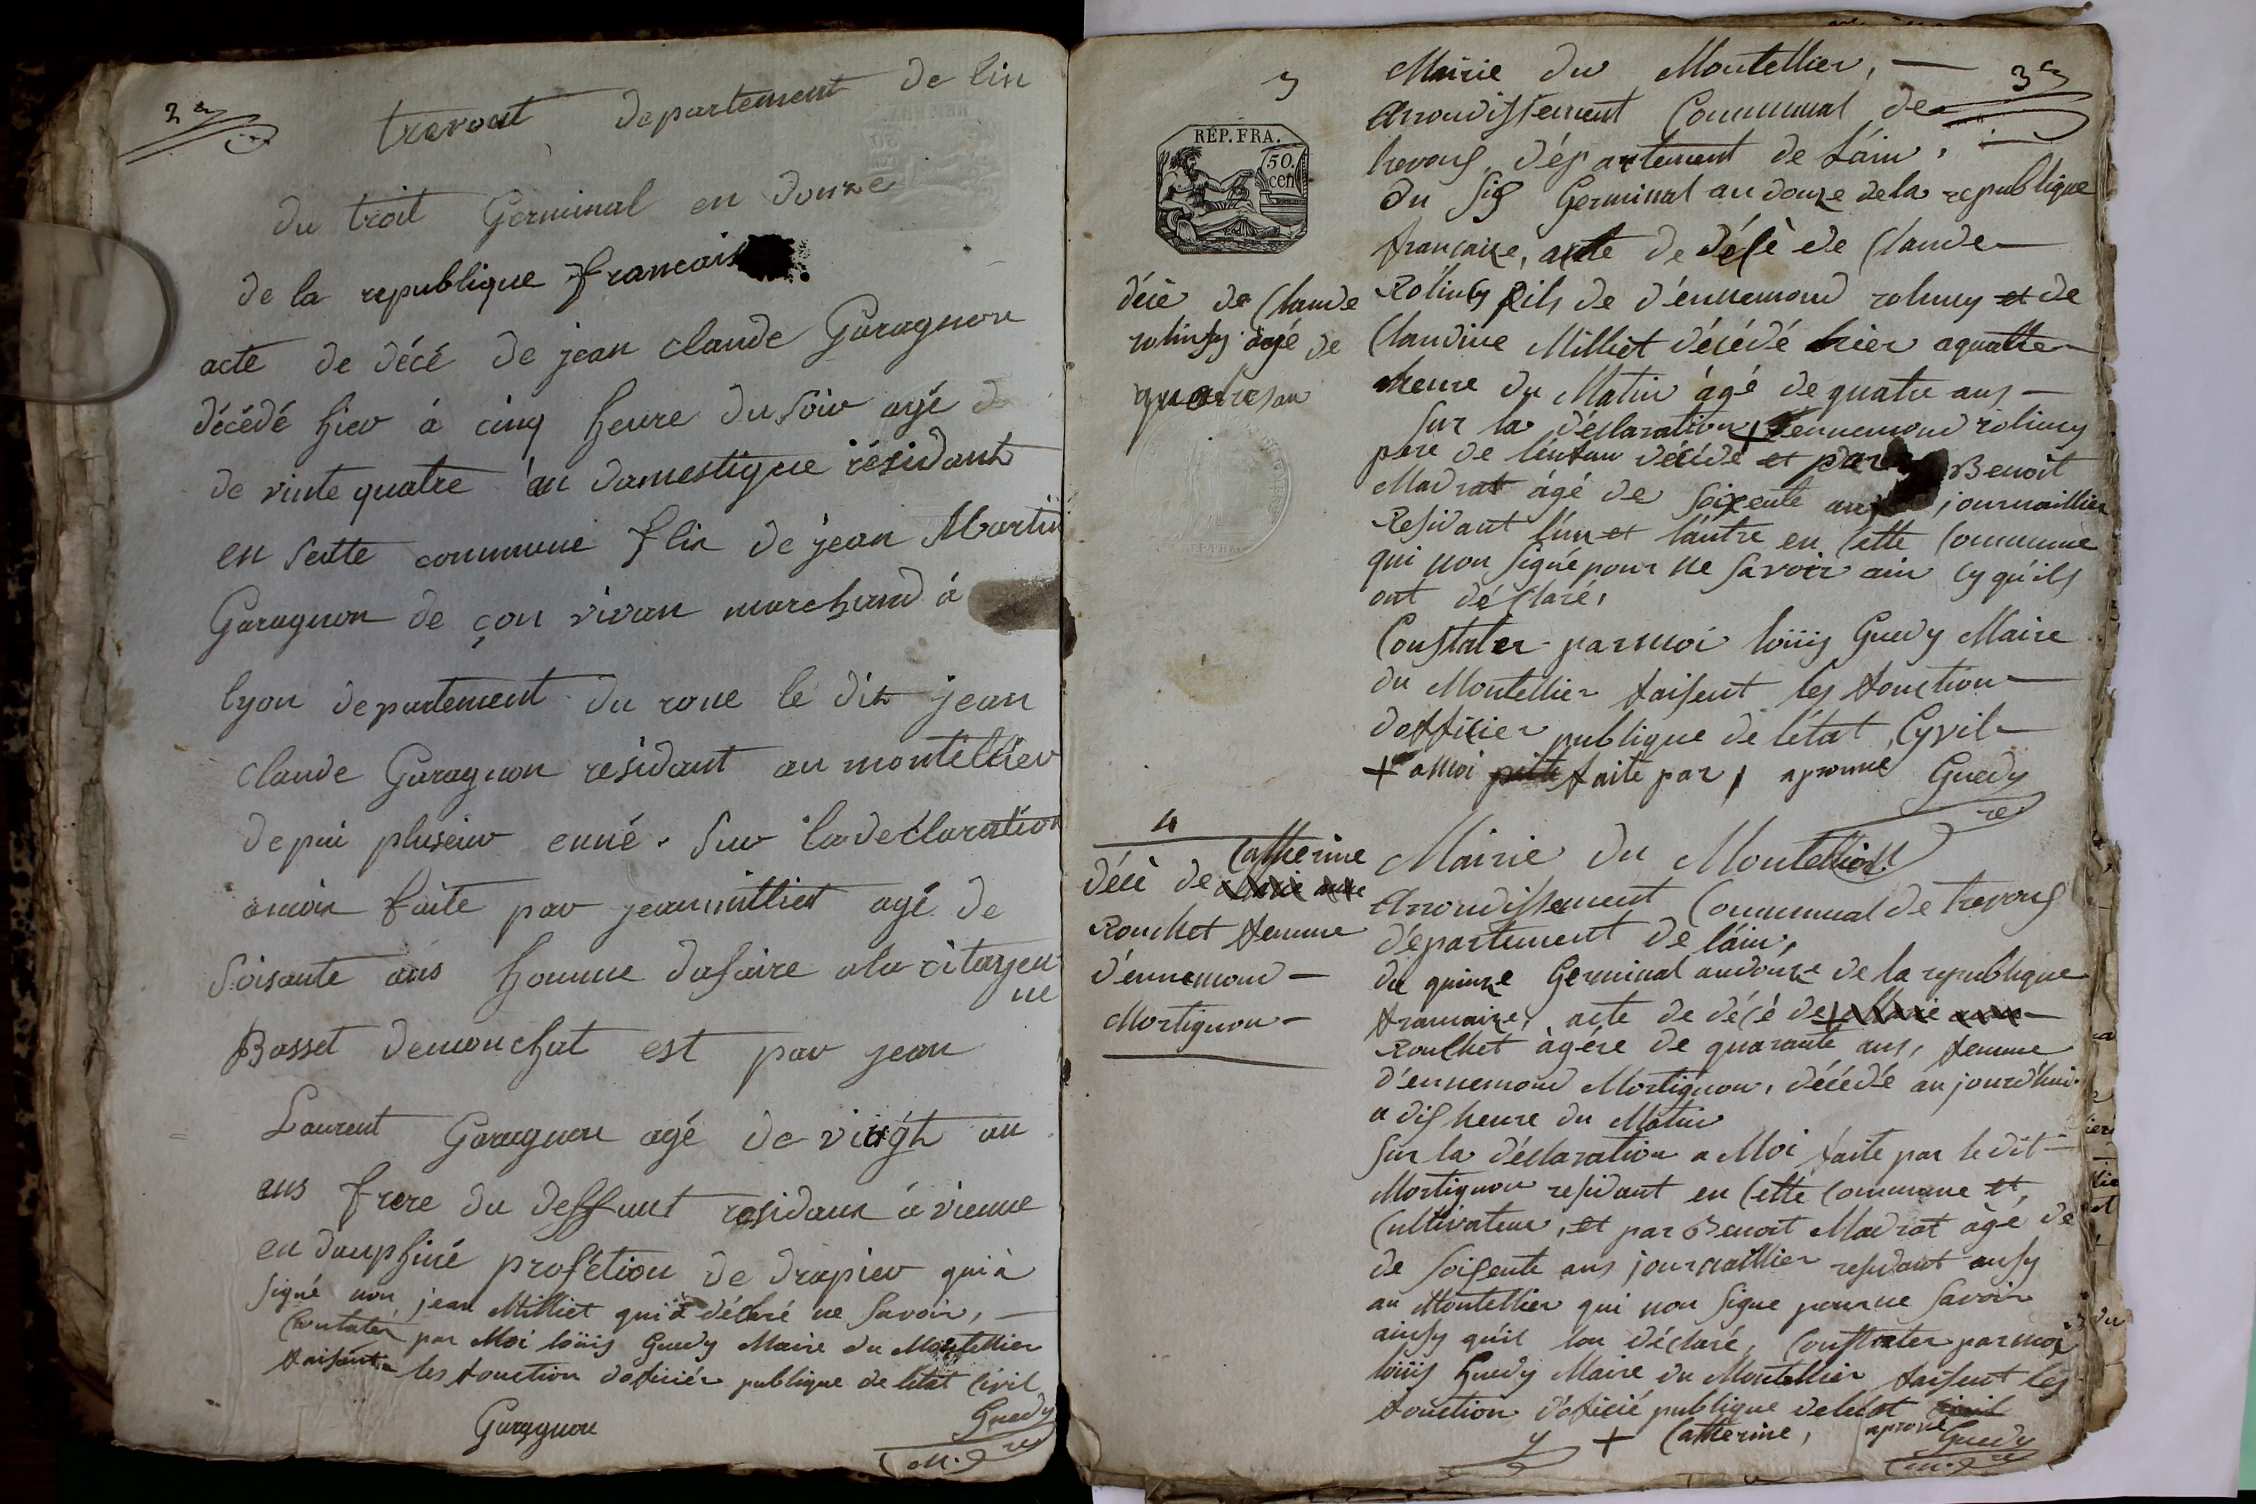 2e
trevout departement de lin
du troit Germinal en douze
de la republique francais
acte de décé de jean claude Garagnon
décédé hier à cinq heure du soir agé d
de vinte quatre an damestique résidant
en sette commune flis de jean Martin
Garagnon de çon vivan marchand à
lyon departement du rone le dit jean
claude Garagnon résidant au montellier
depui pluseiur enné. Sur la declaration
amoin faite par jean milliet agé de
Soisante ans homme dafaire ala citoyen
ne
Basset demonchat est par jean
Laurent Garagnon agé de vingt un
ans frere du deffunt residant à vienne
en dauphiné profétion de drapier qui à
signé non jean Milliet qui à déclaré ne savoir,
Contater par Moi loüis Guedy Maire du Montellier
faisant les fonction d'oficiér publique de létat Civil
Garagnon
Guedy
m.re
3
3e
Mairie du Montellier,
Arrondissement Communal de
trevoux, département de l'ain,
Du six Germinal an douze de la republique
française, acte de décè de Claude
RÉP. FRA.
50.
cen
décè de Claude
rolinsy agé de
quatre an
Rolinsy fils de d'ennemond rolinsy et de
Claudine Milliet décédé hier a quattre
heure du Matin âgé de quatre ans
Sur la déclaration + d'ennemond rolinsy
pere de l'enfan décédé et par Benoit
Madrat âgé de soixente ans journaillier
Residant l'un et l'autre en Cette Commune
qui non signé pour ne savoir ain cy qu'ils
ont déclaré,
Constater par moi loüis Guedy Maire
du Montellier faisent les fonction
d'officier publique de l'état Cyvil
+ a moi faite par, aprouve Guedy
re
4
décè de Catherine
Rouchet femme
d'ennemond
Mortignon
Mairie du Montellier
Arrondissement Communal de trevoux
département de l'ain,
du quinze Germinal an douze de la republique
francaise, acte de décé de +
Rouchet âgée de quarante ans, femme
d'ennemond Mortignon, décédé aujourd'hui
a dix heure du Matin
Sur la déclaration a Moi faite par le dit
Mortignon residant en Cette Commune et,
Cultivateur, et par Benoit Madrat âgé de
de soisente ans journaillier residant ausy
au Montellier qui non signe pour ne savoir
ainsy qu'il lon déclaré, Constater par moi
loüis Guedy Maire du Montellier faisent les
fonction d'oficié publique de létat Civil
+ Catherine, aprouve Guedy
m.re